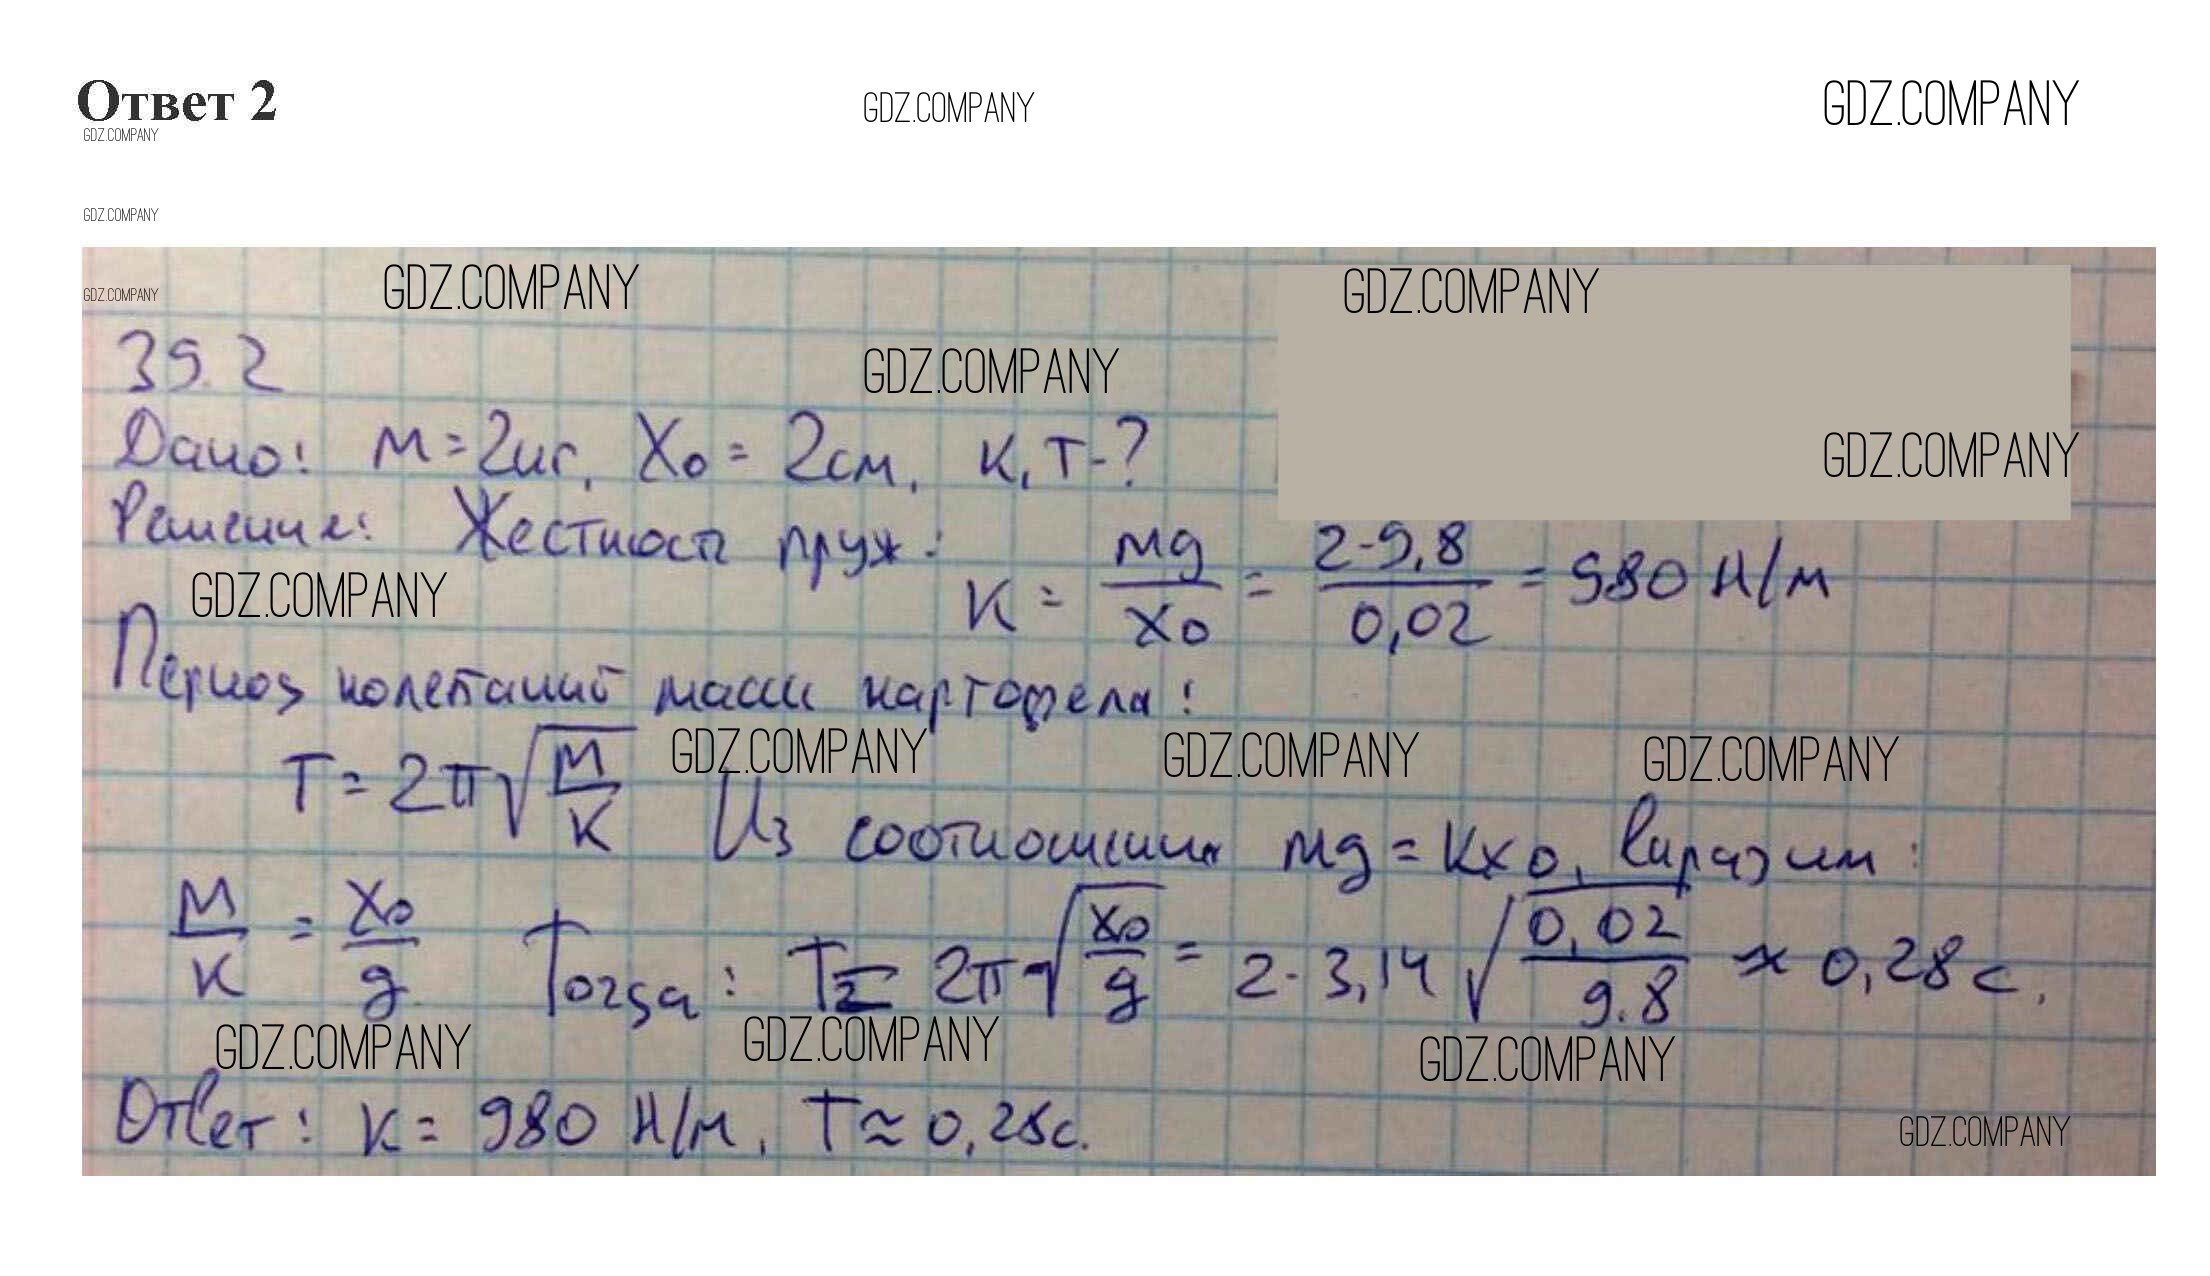 Ответ 2
GDZ.COMPANY GDZ.COMPANY
GDZ.COMPANY
GDZ.COMPANY
GDZ.COMPANY GDZ.COMPANY GDZ.COMPANY
39.2
GDZ.COMPANY
Дано: m = 2кг, x₀ = 2см, к, T-?
GDZ.COMPANY
Решение: Жесткость пруж:
K = mg/x₀ = 2·9,8/0,02 = 980 Н/м
GDZ.COMPANY
Период колебаний массы картофеля:
T = 2π√(m/K) Из соотношения mg = Kx₀, выразим:
GDZ.COMPANY GDZ.COMPANY GDZ.COMPANY
m/к = x₀/g. Тогда: T = 2π√(x₀/g) = 2·3,14√(0,02/9.8) ≈ 0,28 с.
GDZ.COMPANY GDZ.COMPANY GDZ.COMPANY
Ответ: K = 980 Н/м, T ≈ 0,28с.
GDZ.COMPANY